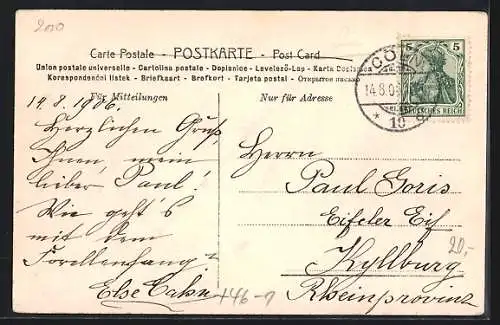 200
Carte Postale - POSTKARTE - Post Card
Union postale universelle - Cartolina postale - Dopisnice - Levelező-Lap - Karta Dopisowa
Korespondenční listek - Briefkaart - Brefkort - Tarjeta postal - Открытое письмо
Für Mitteilungen
Nur für Adresse
5 5
CÖLN
14.8.06
DEUTSCHES REICH
* 10 a
14.8.1906.
Herzlichen Gruß,
Ihnen, mein
lieber Paul!
Wie geht's
mit dem
Forellenfang?
Else Cahn
+46-9
Herrn
Paul Goris
Eifeler
Kyllburg
20,-
Rheinprovinz